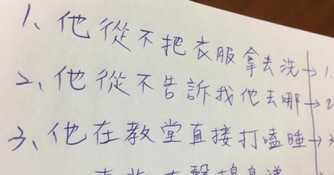 1、他從不把衣服拿去洗→1.
2、他從不告訴我他去哪→2
3、他在教堂直接打瞌睡→3